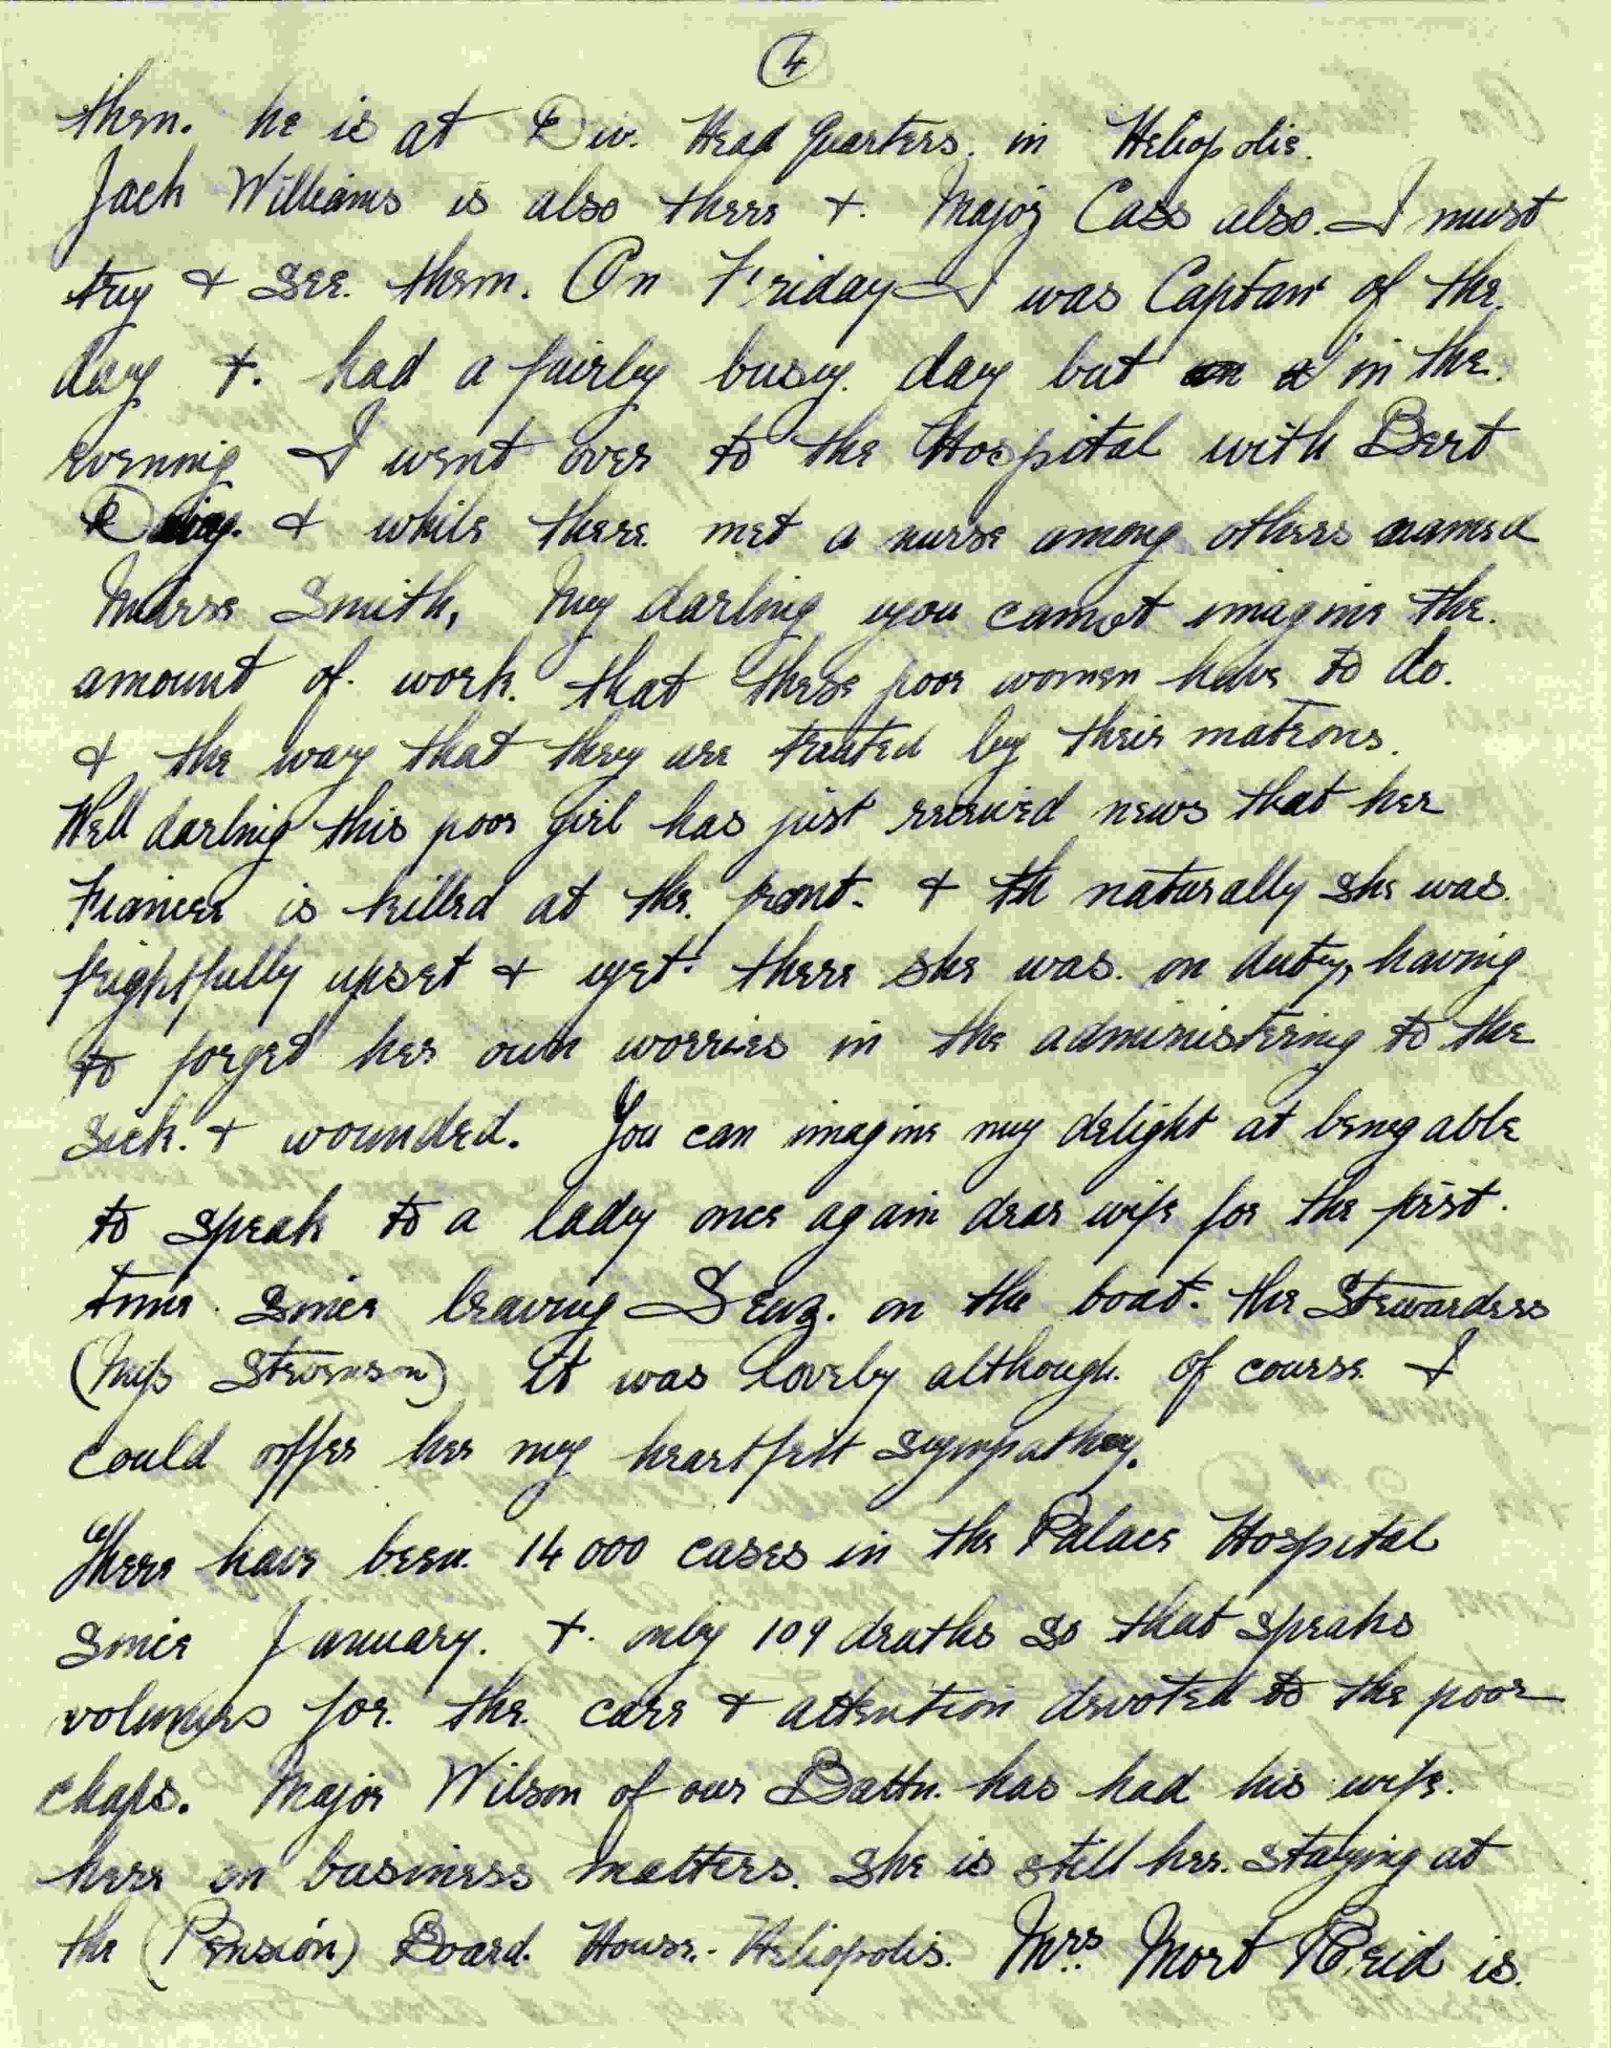 4
then. he is at Div. Head Quarters. in Heliopolis.
Jack Williams is also there +. Major Cass also. I must
try + see. them. On Friday I was Captain of the.
day +. had a fairly busy. day but in the.
evening I went over to the Hospital with Bert
+ while there. met a nurse among others named
Nurse Smith, My darling you cannot imagine the.
amount of. work. that these poor women have to do.
+ the way that they are treated by their matrons.
Well darling this poor girl has just received news that her
Fiancee is killed at the. front. + th naturally she was.
frightfully upset + yet. there she was. on duty, having
to forget her own worries in the administering to the
sick. + wounded. You can imagine my delight at being able
to speak to a lady once again dear wife for the first.
time. since leaving Suez. on the boat. the Stewardess
(Miss Stevenson) It was lovely although. of course. I
could offer her my heartfelt sympathy.
There have been. 14000 cases in the Palace Hospital
since January. +. only 109 deaths so that speaks
volumes for. the. care + attention devoted to the poor
chaps. Major Wilson of our Battn. has had his wife.
here on business matters. she is still her. staying at
the (Pension) Board. House. Heliopolis. Mrs. Mort Reid is.